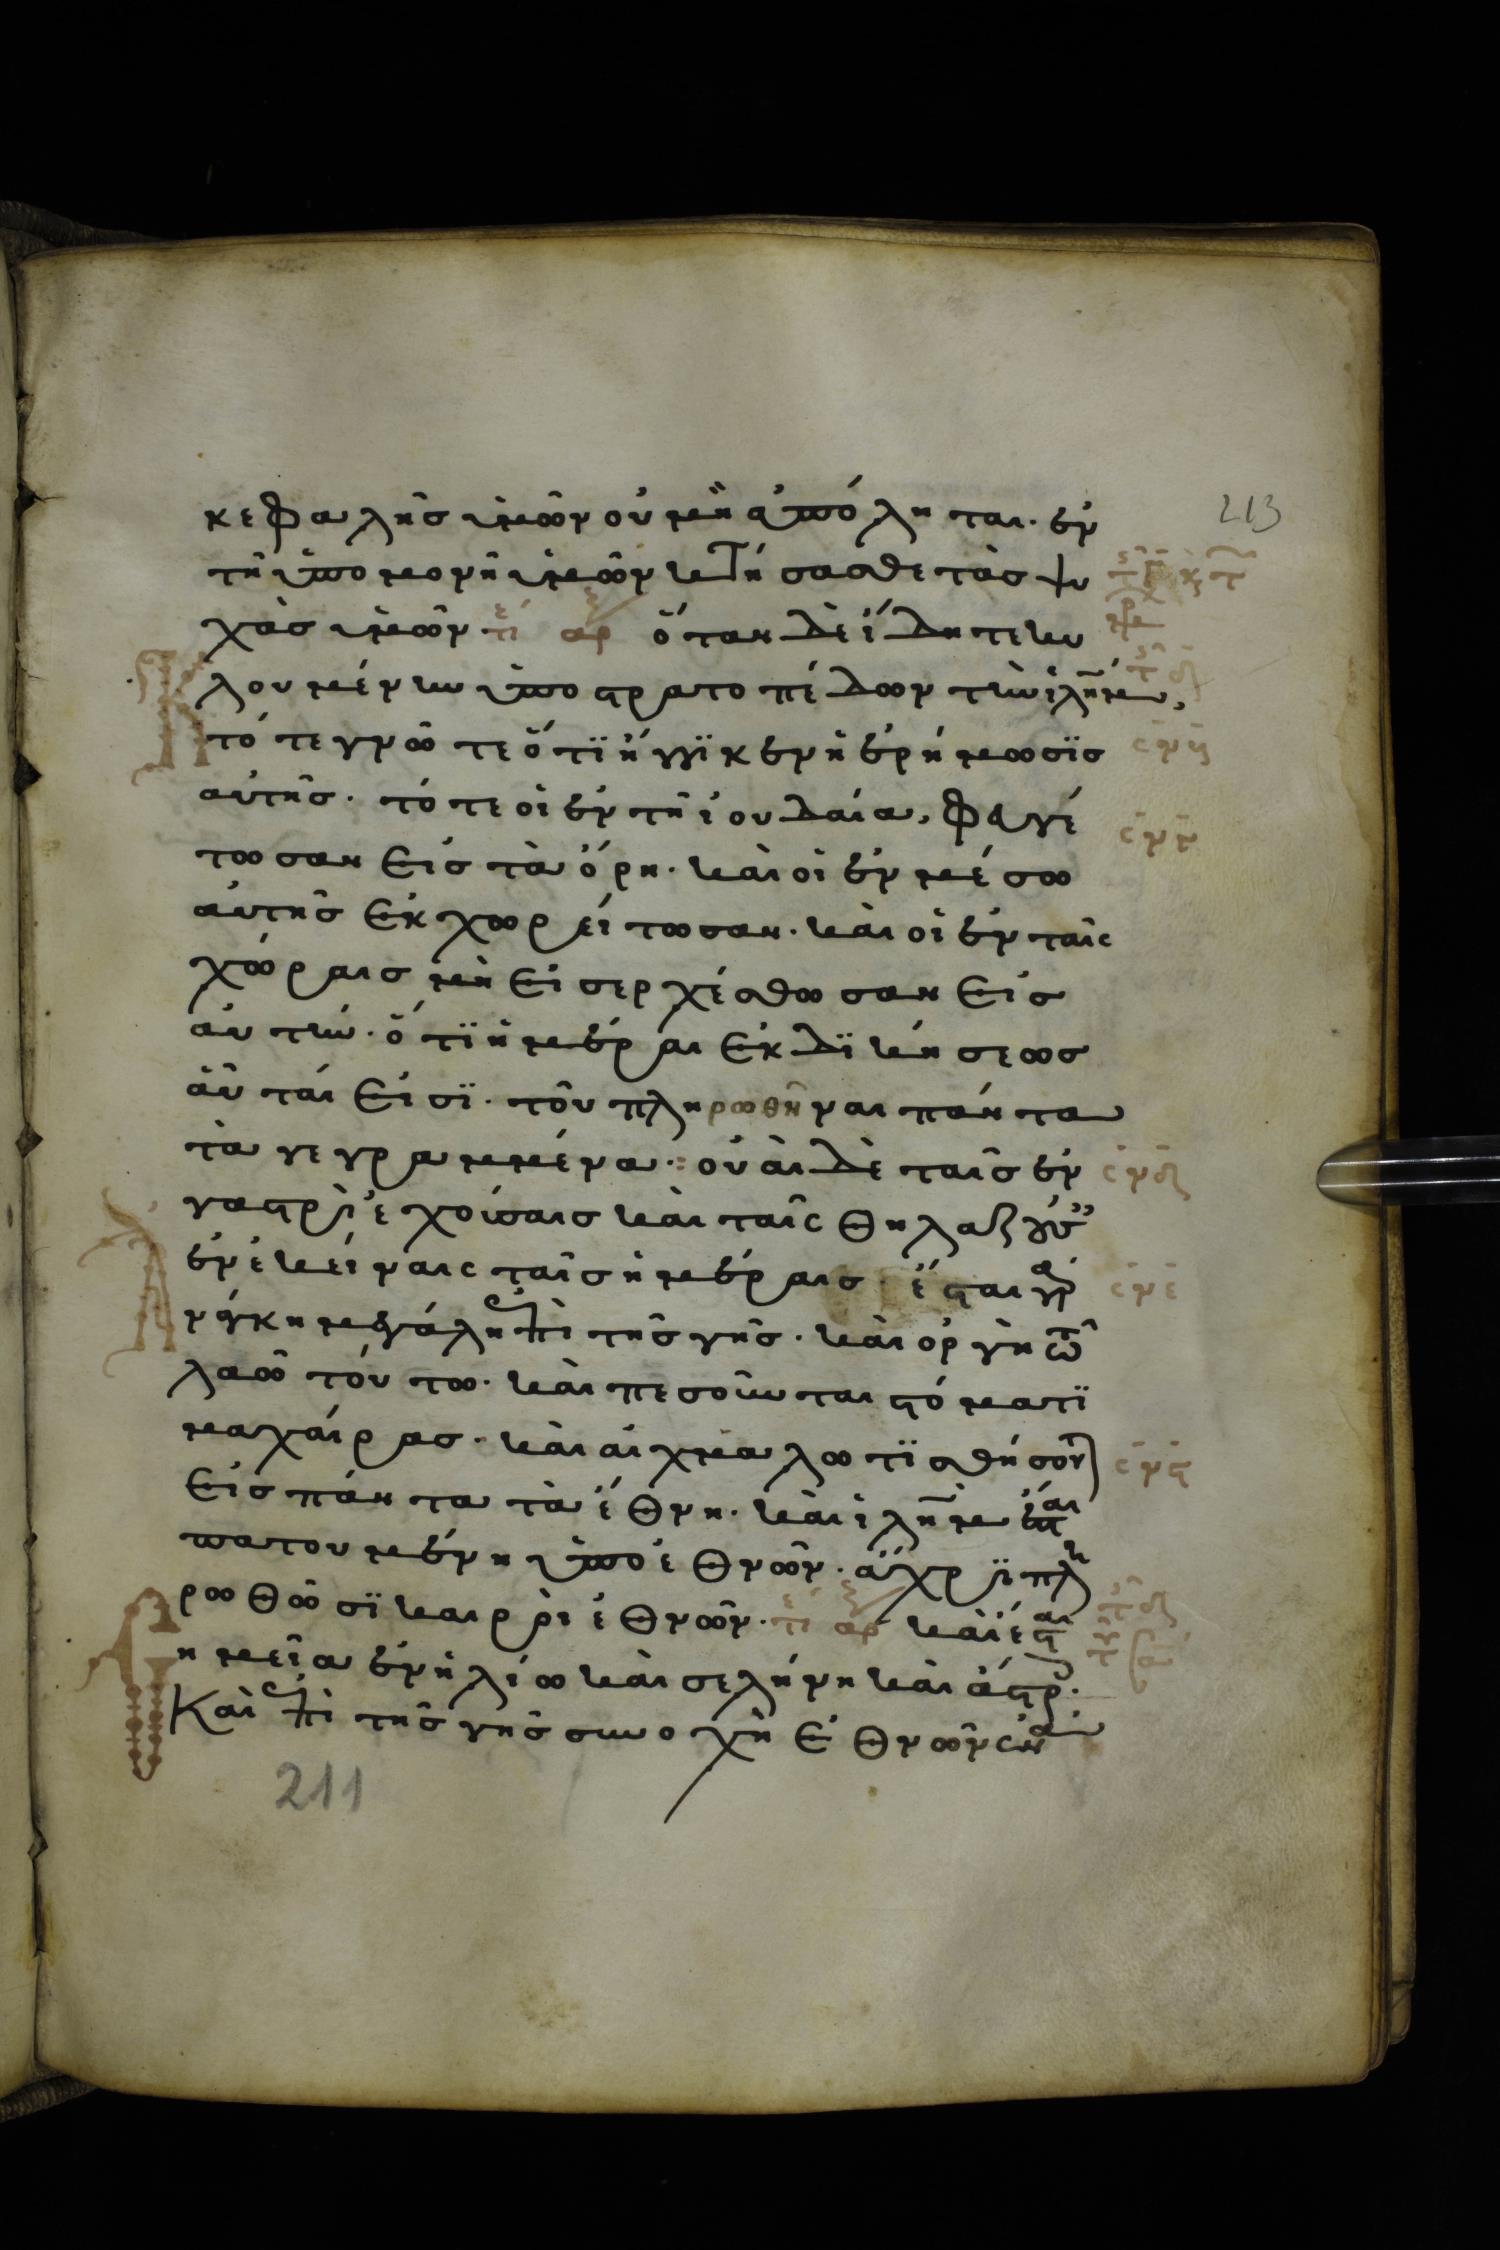 213
κεφαλῆσ ὑμῶν οὐ μὴ ἀπόληται· ἐν
τῆ ὑπομονῆ ὑμῶν κτήσασθε τὰσ ψυ
χὰσ ὑμῶν ὅταν δὲ ἴδητε κυ
κλουμένην ὑπο στρατοπέδων τὴν ἰλημ,
τότε γνῶτε ὅτϊ ἤγγϊκεν ἡ ἐρήμωσϊσ
αὐτῆσ· τότε οἱ ἐν τῆ ἰουδαία, φευγέ
τωσαν εἰσ τὰ ὄρη· καὶ οἱ ἐν μέσω
αὐτῆσ ἐκχωρείτωσαν· καὶ οἱ ἐν ταῖς
χώραισ μὴ εἰσερχέσθωσαν εἰσ
αὐτήν· ὅτϊ ἡμέραι ἐκδϊκήσεωσ
αὗταί εἰσϊ· τοῦ πληρωθῆναι πάντα
τὰ γεγραμμένα· οὐαὶ δὲ ταῖσ ἐν
γαστρὶ ἐχούσαισ καὶ ταῖς θηλαζού
ἐν ἐκείναις ταῖσ ἡμέραισ· ἔσται γὰρ
ἀνάγκη μεγάλη ἐπὶ τῆσ γῆσ· καὶ ὀργὴ τῶ
λαῶ τούτω· καὶ πεσοῦνται στόματϊ
μαχαίρασ· καὶ αἰχμαλωτϊσθήσον
εἰσ πάντα τὰ ἔθνη· καὶ ἰλημ ἔσται
πατουμένη ὑπὸ ἐθνῶν· ἄχρϊ πλη
ρωθῶσϊ καιροὶ ἐθνῶν· καὶ ἔσται
σημεῖα ἐν ἡλίω καὶ σελήνη καὶ ἄστρ·
Καὶ ἐπὶ τῆσ γῆσ συνοχὴ ἐθνῶν ἐν α
211